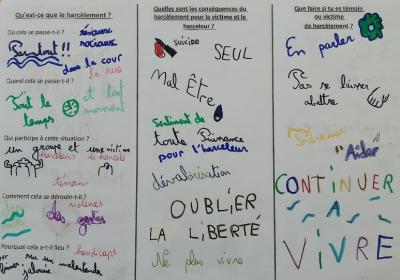 Qu'est-ce que le harcèlement ?
Où cela se passe-t-il ?
réseaux
sociaux
Partout !!
dans la cour
la rue
Quand cela se passe-t-il ?
Tout le
temps
et tout
moment
Qui participe à cette situation ?
un groupe et une victime
le harcelé
témoins
Comment cela se déroule-t-il ?
violences
des gestes
Pourquoi cela a-t-il lieu ?
handicaps
sur un malentendu
jalousie
Quelles sont les conséquences du
harcèlement pour la victime et le
harceleur ?
suicide
SEUL
Mal Être
Sentiment de
toute Puissance
pour l'harceleur
dévalorisation
OUBLIER
LA LIBERTÉ
Ne plus vivre
Que faire si tu es témoin
ou victime
de harcèlement ?
En parler
Pas se laisser
abattre
Prévenir
"Aider"
CONTINUER
A
VIVRE